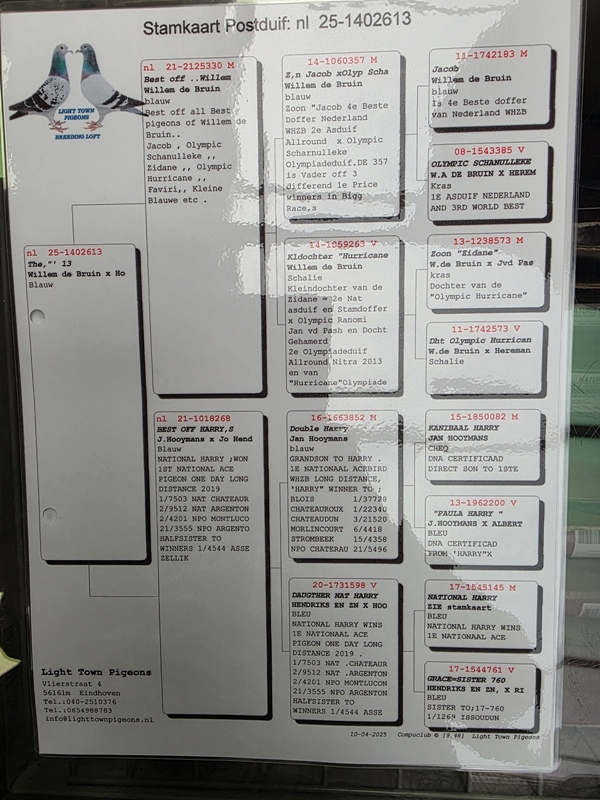 Stamkaart Postduif: nl 25-1402613
LIGHT TOWN
PIGEONS
BREEDING LOFT
nl 25-1402613
The,"' 13
Willem de Bruin x Ho
Blauw
nl 21-2125330 M
Best off ..Willem
Willem de Bruin
blauw
Best off all Best
pigeons of Willem de
Bruin..
Jacob , Olympic
Schanulleke ,,
Zidane ,, Olympic
Hurricane ,,
Faviri,, Kleine
Blauwe etc .
nl 21-1018268
BEST OFF HARRY,S
J.Hooymans x Jo Hend
Blauw
NATIONAL HARRY ;WON
1ST NATIONAL ACE
PIGEON ONE DAY LONG
DISTANCE 2019
1/7503 NAT CHATEAUR
2/9512 NAT ARGENTON
2/4201 NPO MONTLUCO
21/3555 NPO ARGENTO
HALFSISTER TO
WINNERS 1/4544 ASSE
ZELLIK
14-1060357 M
Z,n Jacob xOlyp Scha
Willem de Bruin
blauw
Zoon "Jacob 4e Beste
Doffer Nederland
WHZB 2e Asduif
Allround x Olympic
Scharnulleke
Olympiadeduif.DE 357
is Vader off 3
differend 1e Price
winners in Bigg
Race,s
14-1059263 V
Kldochter "Hurricane
Willem de Bruin
Schalie
Kleindochter van de
Zidane = 2e Nat
asduif en Stamdoffer
x Olympic Ranomi
Jan vd Pash en Docht
Gehamerd
2e Olympiadeduif
Allround Nitra 2013
en van
"Hurricane"Olympiade
16-1663852 M
Double Harry
Jan Hooymans
blauw
GRANDSON TO HARRY .
1E NATIONAAL ACEBIRD
WHZB LONG DISTANCE,
'HARRY" WINNER TO ;
BLOIS 1/37728
CHATEAUROUX 1/22340
CHATEAUDUN 3/21520
MORLINCOURT 6/4418
STROMBEEK 15/4358
NPO CHATERAU 21/5496
20-1731598 V
DAUGTHER NAT HARRY
HENDRIKS EN ZN X HOO
BLEU
NATIONAL HARRY WINS
1E NATIONAAL ACE
PIGEON ONE DAY LONG
DISTANCE 2019 .
1/7503 NAT .CHATEAUR
2/9512 NAT .ARGENTON
2/4201 NPO MONTLUCON
21/3555 NPO ARGENTON
HALFSISTER TO
WINNERS 1/4544 ASSE
11-1742183 M
Jacob
Willem de Bruin
blauw
Is 4e Beste doffer
van Nederland WHZB
08-1543385 V
OLYMPIC SCHANULLEKE
W.A DE BRUIN X HEREM
Kras
1E ASDUIF NEDERLAND
AND 3RD WORLD BEST
13-1238573 M
Zoon "Zidane"
W.de Bruin x Jvd Pas
kras
Dochter van de
"Olympic Hurricane"
11-1742573 V
Dht Olympic Hurrican
W.de Bruin x Hereman
Schalie
15-1850082 M
KANIBAAL HARRY
JAN HOOYMANS
CHEQ
DNA CERTIFICAAD
DIRECT SON TO 1STE
13-1962200 V
"PAULA HARRY "
J.HOOYMANS X ALBERT
BLEU
DNA CERTIFICAD
FROM 'HARRY"X
17-1545145 M
NATIONAL HARRY
ZIE stamkaart
BLEU
NATIONAL HARRY WINS
1E NATIONAAL ACE
17-1544761 V
GRACE=SISTER 760
HENDRIKS EN ZN, X RI
BLEU
SISTER TO;17-760
1/1269 ISSOUDUN
Light Town Pigeons
Vlierstraat 4
5616lm Eindhoven
Tel.:040-2510376
Tel.:0654988783
info@lighttownpigeons.nl
10-04-2025 Compuclub © [9.48] Light Town Pigeons